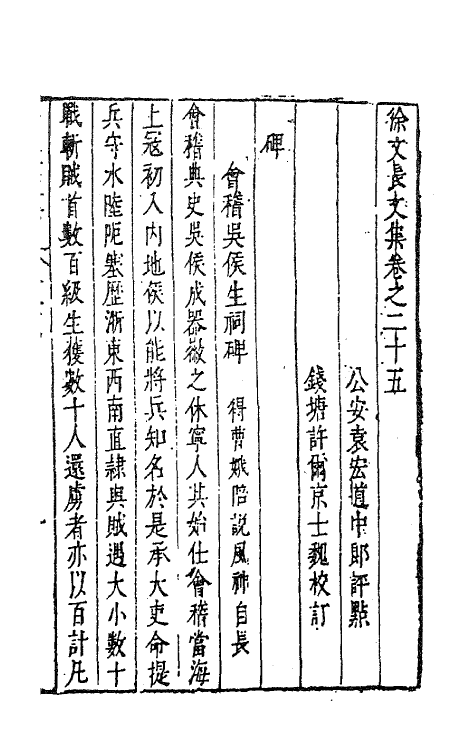 徐文長文集卷之二十五
公安袁宏道中郎評點
錢塘許爾京士魏校訂
碑
會稽吳侯生祠碑　得曹娥陪說風神自長
會稽典史吳侯成器徽之休寧人其始仕會稽當海
上寇初入内地侯以能將兵知名於是承大吏命提
兵守水陸阨塞歷浙東西南直隷與賊遇大小數十
戰斬賊首數百級生獲數十人還虜者亦以百計凡